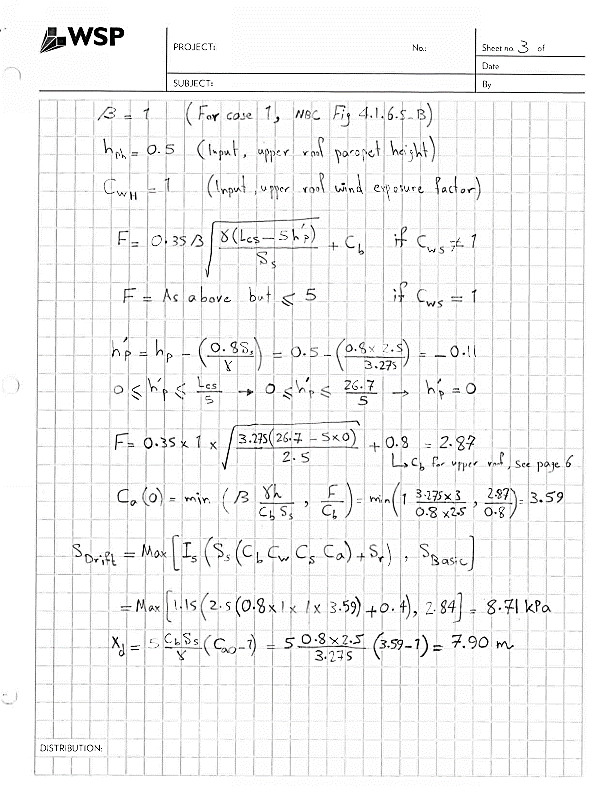 WSP
PROJECT: No.: Sheet no. 3 of
Date
SUBJECT: By
β = 1 (For case 1, NBC Fig 4.1.6.5-B)
hph = 0.5 (Input, upper roof parapet height)
CWH = 1 (Input, upper roof wind exposure factor)
F = 0.35 β √(γ(Lcs − 5h'p) / Ss) + Cb if Cws ≠ 1
F = As above but ⩽ 5 if Cws = 1
h'p = hp − (0.8Ss / γ) = 0.5 − (0.8 × 2.5 / 3.275) = −0.11
0 ⩽ h'p ⩽ Lcs/5 → 0 ⩽ h'p ⩽ 26.7/5 → h'p = 0
F = 0.35 × 1 × √(3.275(26.7 − 5×0) / 2.5) + 0.8 = 2.87
↳ Cb for upper roof, see page 6
Ca(0) = min (β γh / CbSs , F / Cb) = min(1 3.275×3 / 0.8×2.5 , 2.87 / 0.8) = 3.59
SDrift = Max [Is (Ss (Cb Cw Cs Ca) + Sr) , SBasic]
= Max [1.15 (2.5 (0.8 × 1 × 1 × 3.59) + 0.4), 2.84] = 8.71 kPa
Xd = 5 CbSs / γ (Ca0 − 1) = 5 0.8 × 2.5 / 3.275 (3.59 − 1) = 7.90 m
DISTRIBUTION: